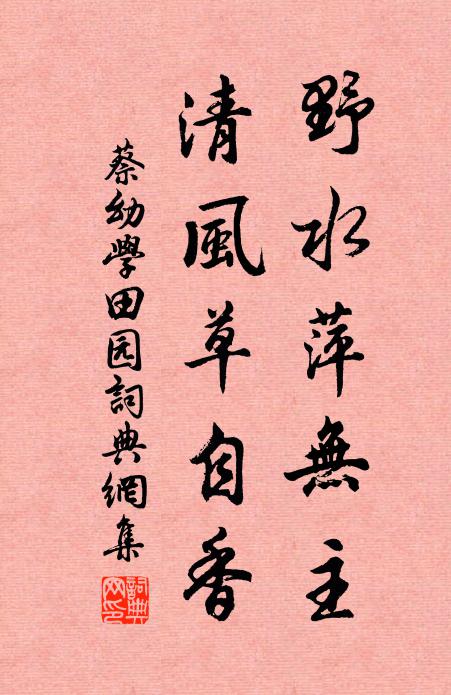 野水萍無主
清風草自香
蔡幼學田园詞典網集
詞典网印